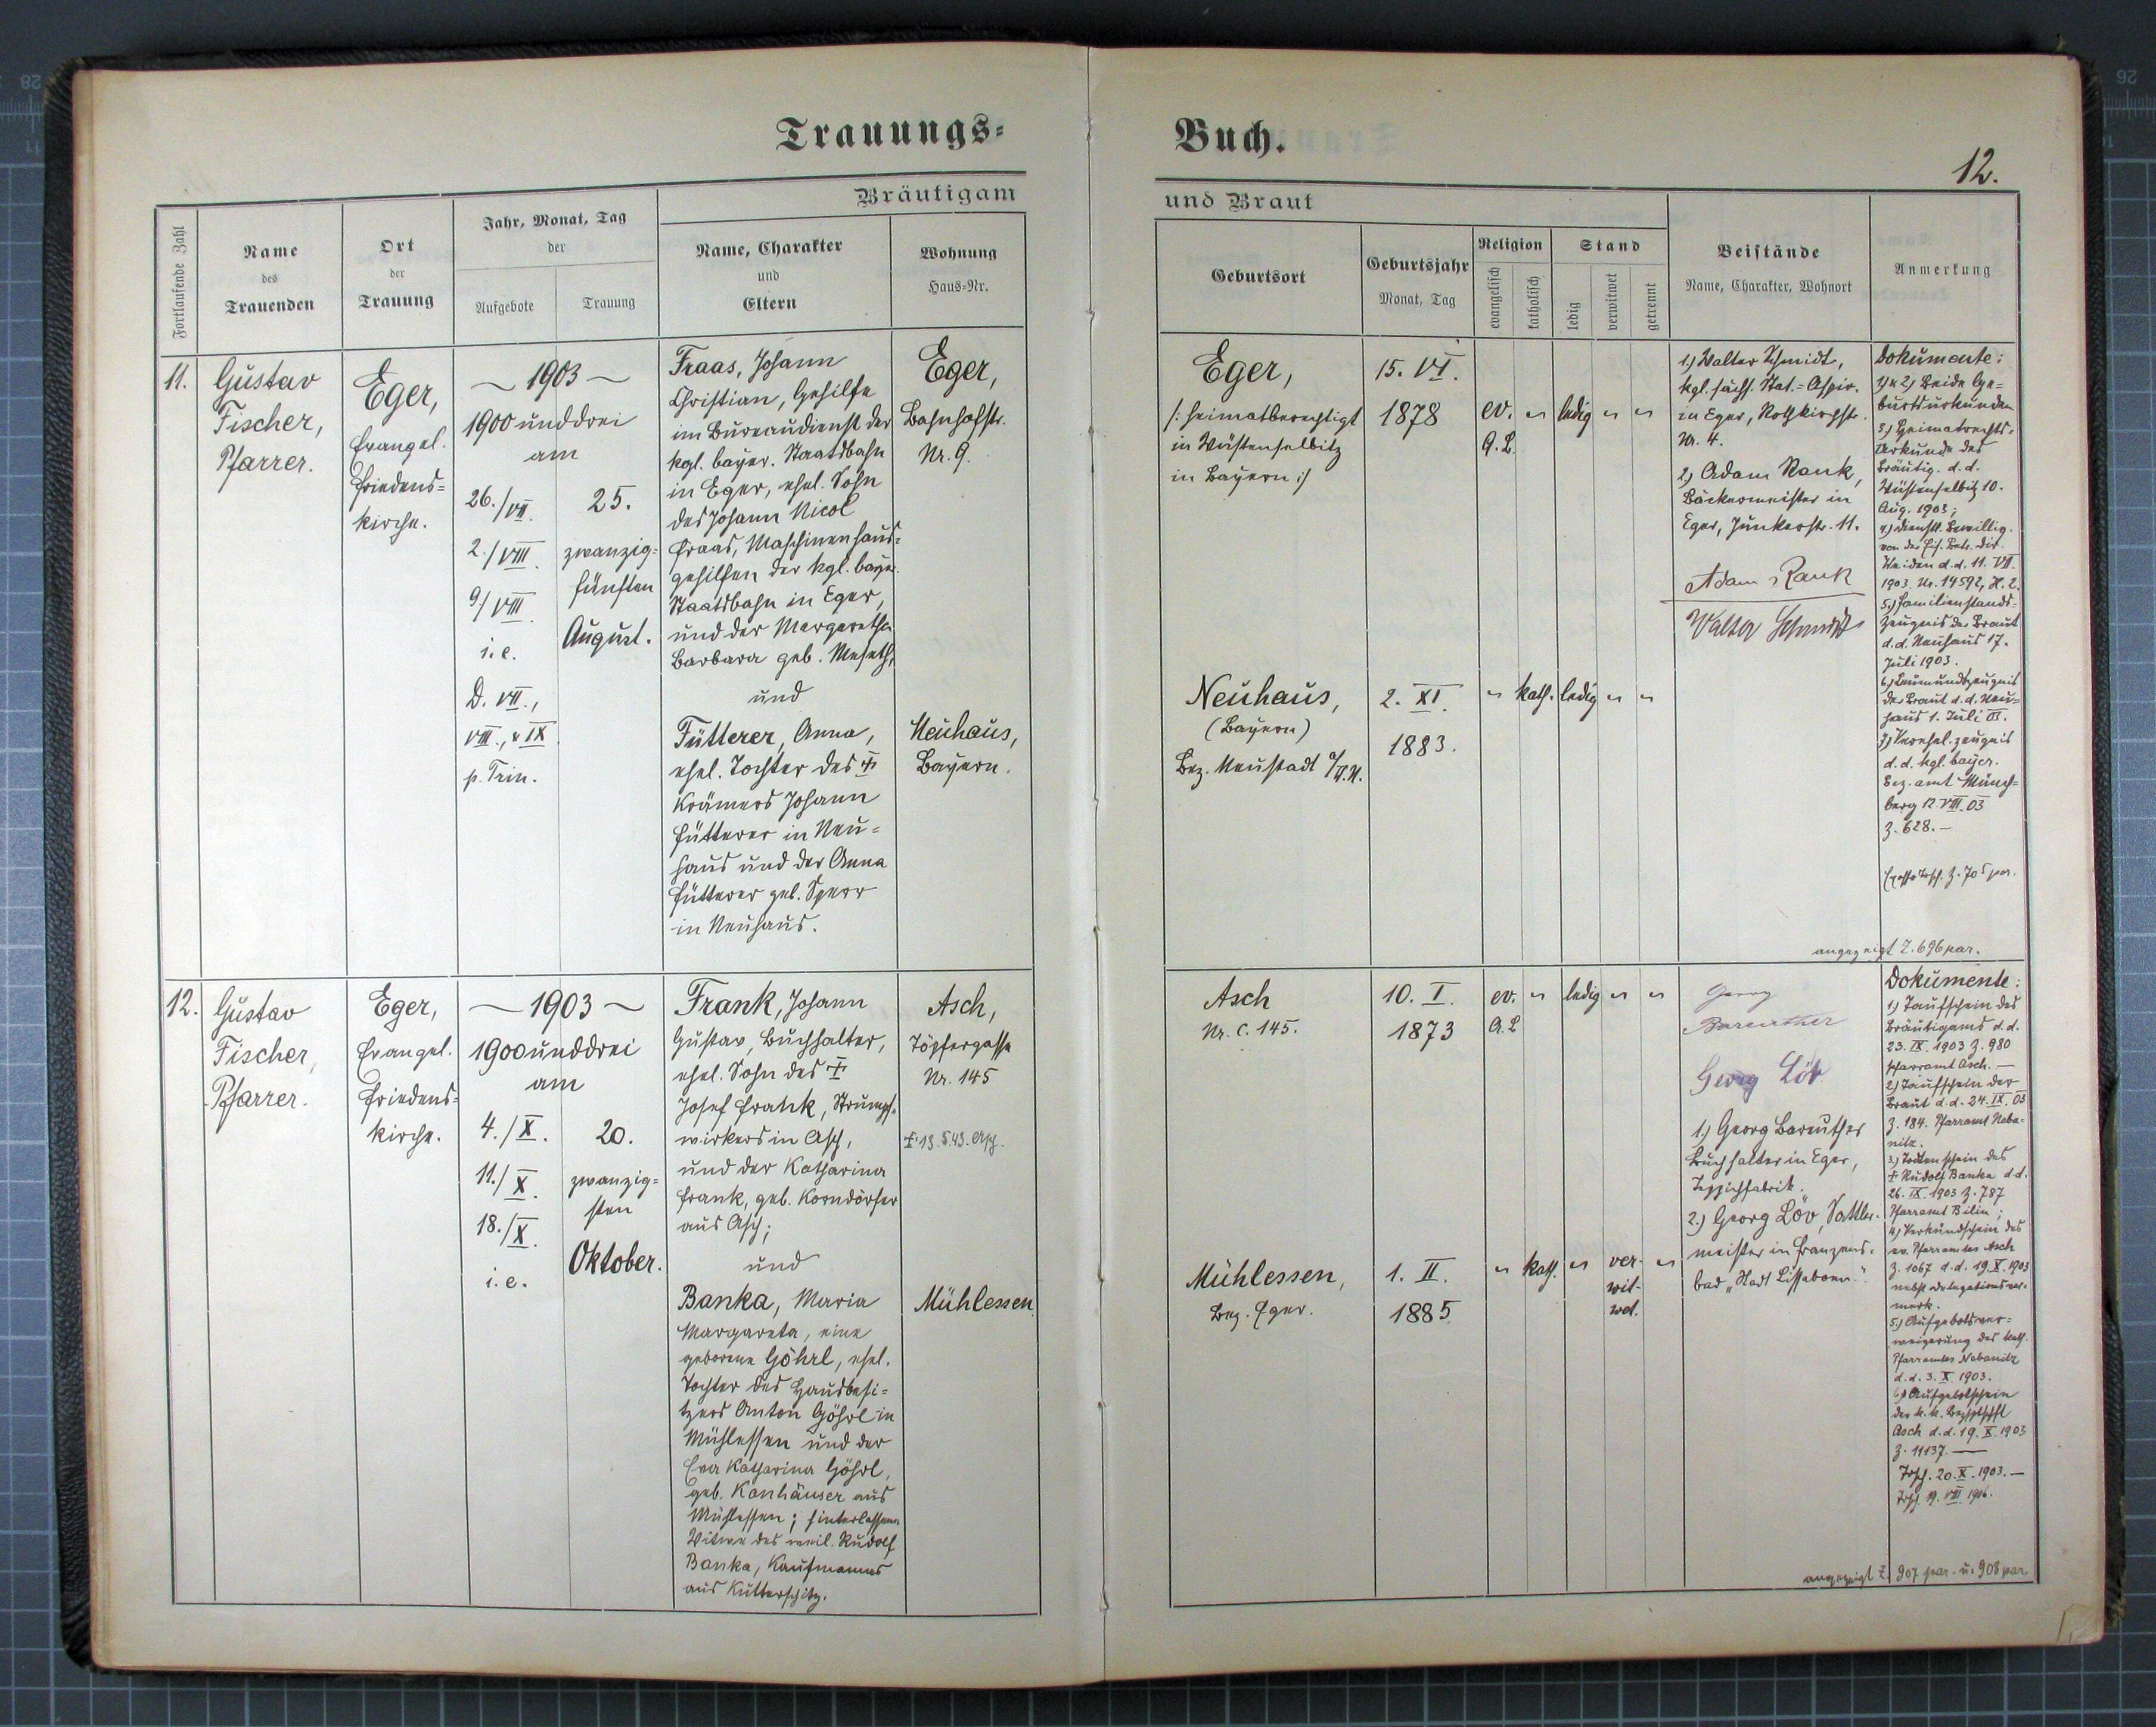 Trauungs=
Buch.
12.
Bräutigam
und Braut
Fortlaufende Zahl
Name
des
Trauenden
Ort
der
Trauung
Jahr, Monat, Tag
der
Aufgebote
Trauung
Name, Charakter
und
Eltern
Wohnung
Haus=Nr.
Geburtsort
Geburtsjahr
Monat, Tag
Religion
evangelisch
katholisch
Stand
ledig
verwitwet
getrennt
Beistände
Name, Charakter, Wohnort
Anmerkung
11.
Gustav
Fischer,
Pfarrer.
Eger,
Evangel.
Friedens=
kirche.
1903
1900 unddrei
am
26./VII.
2./VIII.
9/VIII.
i. e.
D. VII.,
VIII., & IX
p. Trin.
25.
zwanzig=
fünften
August.
Fraas, Johann
Christian, Gehilfe
im Bureaudienst der
kgl. bayer. Staatsbahn
in Eger, ehel. Sohn
des Johann Nicol
Fraas, Maschinenhaus=
gehilfen der kgl. bayer.
Staatsbahn in Eger,
und der Margaretha
Barbara geb. Meseth,
und
Fütterer, Anna,
ehel. Tochter des ‡
Krämers Johann
Fütterer in Neu=
haus und der Anna
Fütterer geb. Sperr
in Neuhaus.
Eger,
Bahnhofstr.
Nr. 9.
Neuhaus,
Bayern.
Eger,
/: heimatberechtigt
in Wüstenselbitz
in Bayern :/
15. VI.
1878
ev.
A. B.
"
ledig
"
"
Neuhaus,
(Bayern)
Bez. Neustadt a/W.N.
2. XI.
1883.
"
kath.
ledig
"
"
1.) Walter Schmidt,
kgl. sächs. Stat.=Aspir.
in Eger, Rothkirchstr.
Nr. 4.
2.) Adam Rank,
Bäckermeister in
Eger, Junkerstr. 11.
Adam Rank
Walter Schmidt
Dokumente:
1) & 2) Beide Ge=
burtsurkunden
3.) Heimatrechts=
Urkunde des
Bräutig. d. d.
Wüstenselbitz 10.
Aug. 1903;
4.) dienstl. Bewillig.
von der Eis. Betr. Dir.
Weiden d. d. 11. VII.
1903 Nr. 14592, H. 2.
5.) Familienstands=
zeugnis der Braut
d. d. Neuhaus 17.
Juli 1903.
6.) Leumundszeugnis
der Braut d. d. Neu=
haus 1. Juli 03.
7.) Verehel. zeugnis
d. d. kgl. bayer.
Bez. amt Münch=
berg 12. VIII. 03
Z. 628. —
Z. 705 par.
angezeigt Z. 696 par.
12.
Gustav
Fischer,
Pfarrer.
Eger,
Evangel.
Friedens=
kirche.
1903
1900 unddrei
am
4./X.
11./X.
18./X.
i. e.
20.
zwanzig=
sten
Oktober.
Frank, Johann
Gustav, Buchhalter,
ehel. Sohn des ‡
Josef Frank, Strumpf=
wirkers in Asch,
und der Katharina
Frank, geb. Korndörfer
aus Asch;
und
Banka, Maria
Margareta, eine
geborene Göhrl, ehel.
Tochter des Hausbesi=
tzers Anton Göhrl in
Mühlessen und der
Eva Katharina Göhrl,
geb. Konhäuser aus
Mühlessen; hinterlassene
Witwe des weil. Rudolf
Banka, Kaufmannes
aus Kutterschitz.
Asch,
Töpfergasse
Nr. 145
‡ 13.5.43. Asch.
Mühlessen
Asch
Nr. C. 145.
10. I.
1873
ev.
A. B
"
ledig
"
"
Mühlessen,
Bez. Eger.
1. II.
1885
"
kath.
"
ver-
wit-
wet.
"
Georg
Bareuther
Georg Löv
1.) Georg Bareuther
Buchhalter in Eger,
Teppichfabrik.
2.) Georg Löv, Sattler=
meister in Franzens=
bad „Stadt Lissabonn“.
Dokumente:
1.) Taufschein des
Bräutigams d. d.
23. IX. 1903 Z. 980
Pfarramt Asch. —
2.) Taufschein der
Braut d. d. 24. IX. 03
Z. 184. Pfarramt Neba=
nitz.
3.) Todtenschein des
‡ Rudolf Banka d. d.
26. IX. 1903 Z. 787
Pfarramt Bilin;
4.) Verkündschein des
ev. Pfarramtes Asch
Z. 1067 d. d. 19. X. 1903
nebst Delegationsver=
merk.
5.) Aufgebotsver=
weigerung des kath.
Pfarramtes Nebanitz
d. d. 3. X 1903.
6.) Aufgebotschein
der k. k. Bezhptschft
Asch d. d. 19. X 1903
Z. 11137. —
Trsch. 20. X. 1903. —
Trsch. 19. VIII 1906.
angezeigt Z. 907 par. u. 908 par